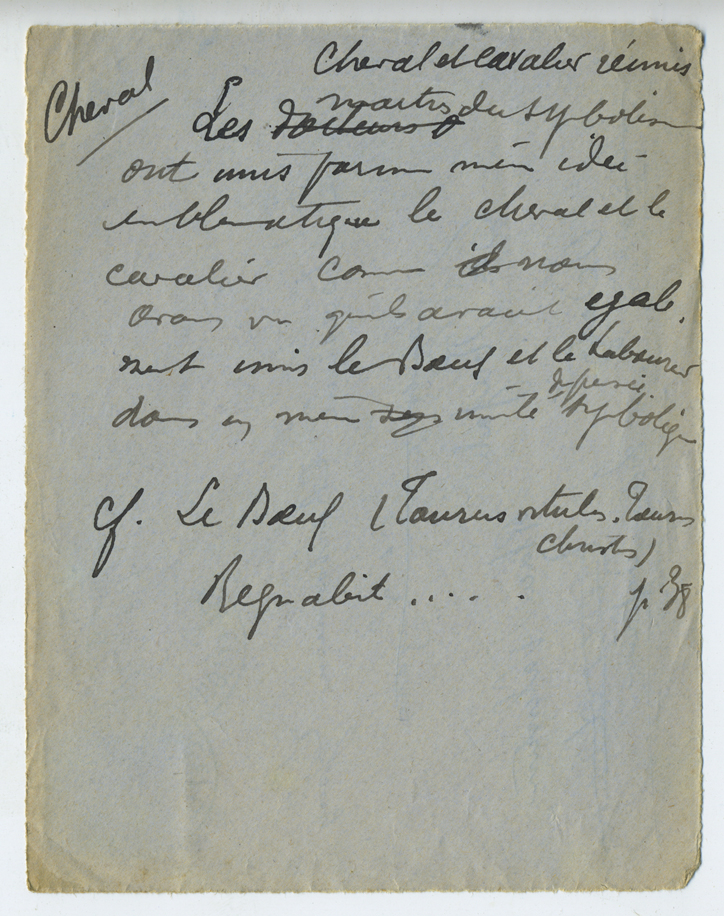 Cheval et cavalier réunis
Cheval
Les docteurs maitres du symbolisme
ont unis par une même idée
emblématique le cheval et le
cavalier comme ils nous
avons vu qu'ils avaient égale.
ment unis le Bœuf et le Laboureur
dans un même unité de pensée symbolique
cf. Le Bœuf (Taurus vitulus. Taurus
christs)
Regnabit ..... p. 38